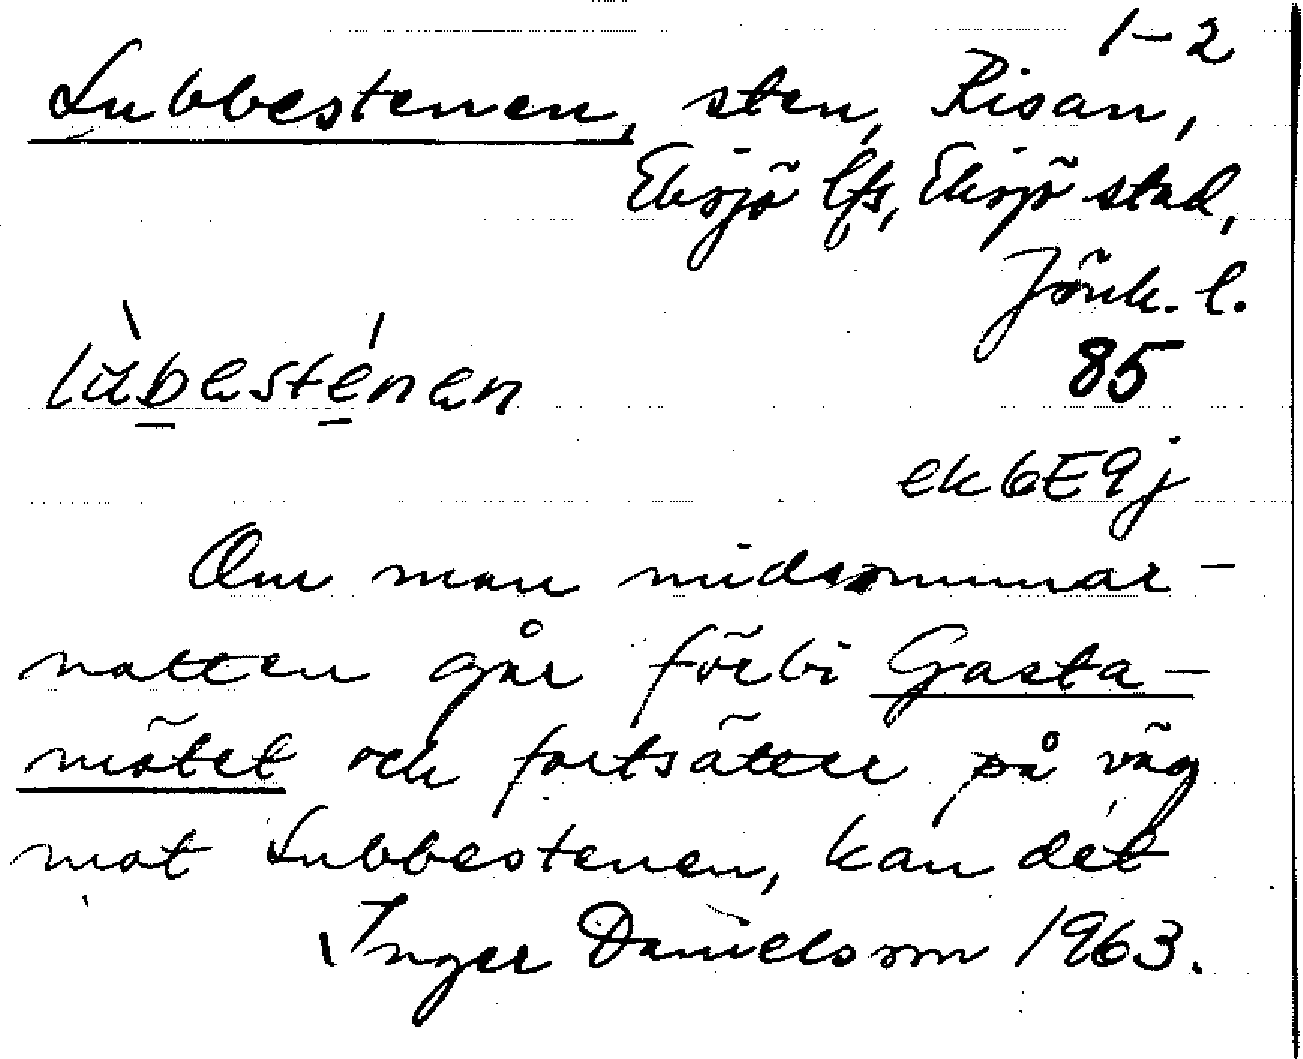 1-2
Lubbestenen, sten, Risan,
Eksjö lfs, Eksjö stad,
Jönk. l.
lùbasténan
85
ek 6E9j
Om man midsommar-
natten går förbi Gasta-
mötet och fortsätter på väg
mot Lubbestenen, kan det
Inger Danielsson 1963.